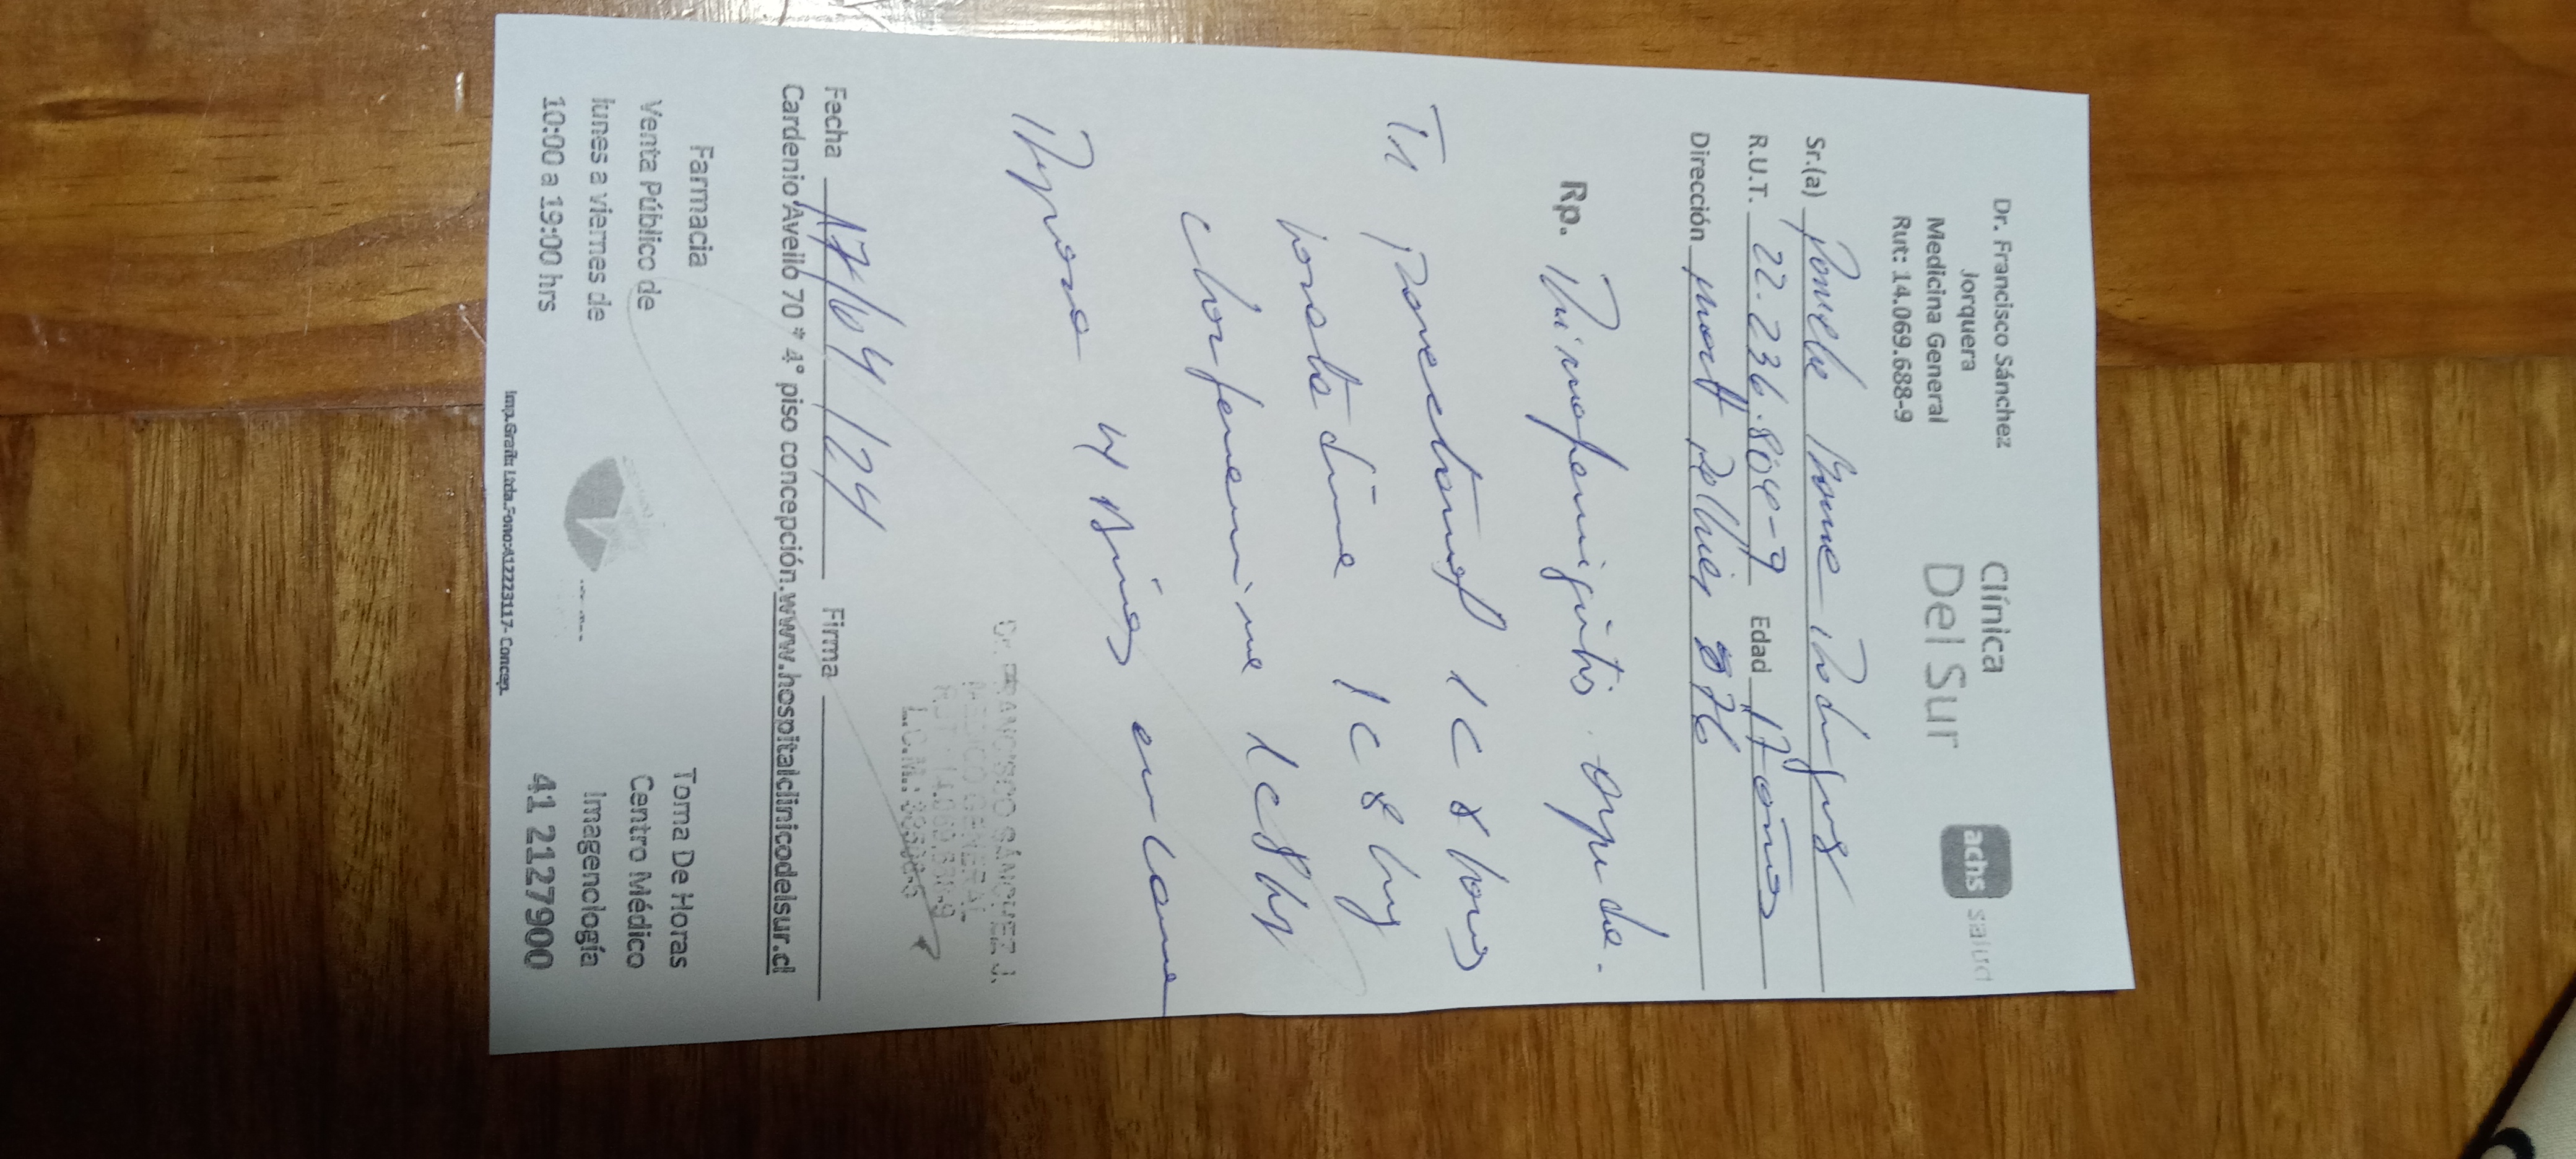 Dr. Francisco Sánchez
Jorquera
Medicina General
Rut: 14.069.688-9
Clínica
Del Sur
achs salud
Sr.(a)
R.U.T. 22.236.804-9 Edad 17 años
Dirección 876
Rp. Rinofaringitis aguda.
Tt Paracetamol 1 c 8 horas
loratadina 1 c 8 hrs
clorfenamina 1 c 8 hrs
Reposo 4 días en cama
Dr. FRANCISCO SÁNCHEZ J.
MEDICO GENERAL
RUT: 14.069.688-9
Fecha 17/04/24 Firma
Cardenio Avello 70 * 4° piso concepción.www.hospitalclinicodelsur.cl
Farmacia
Venta Público de
lunes a viernes de
10:00 a 19:00 hrs
Toma De Horas
Centro Médico
Imagenología
41 2127900
Imp.Grafic Ltda.Fono:412223117- Concep.